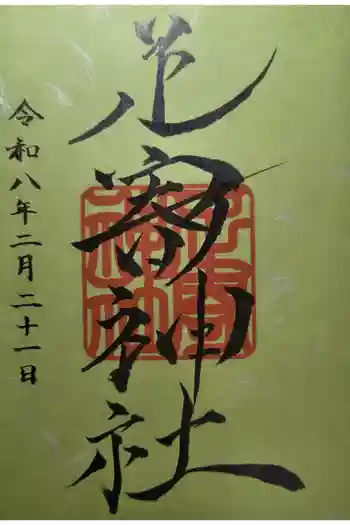 足寄神社
令和八年二月二十一日